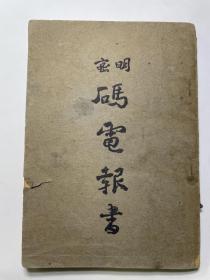 明密
碼電報書